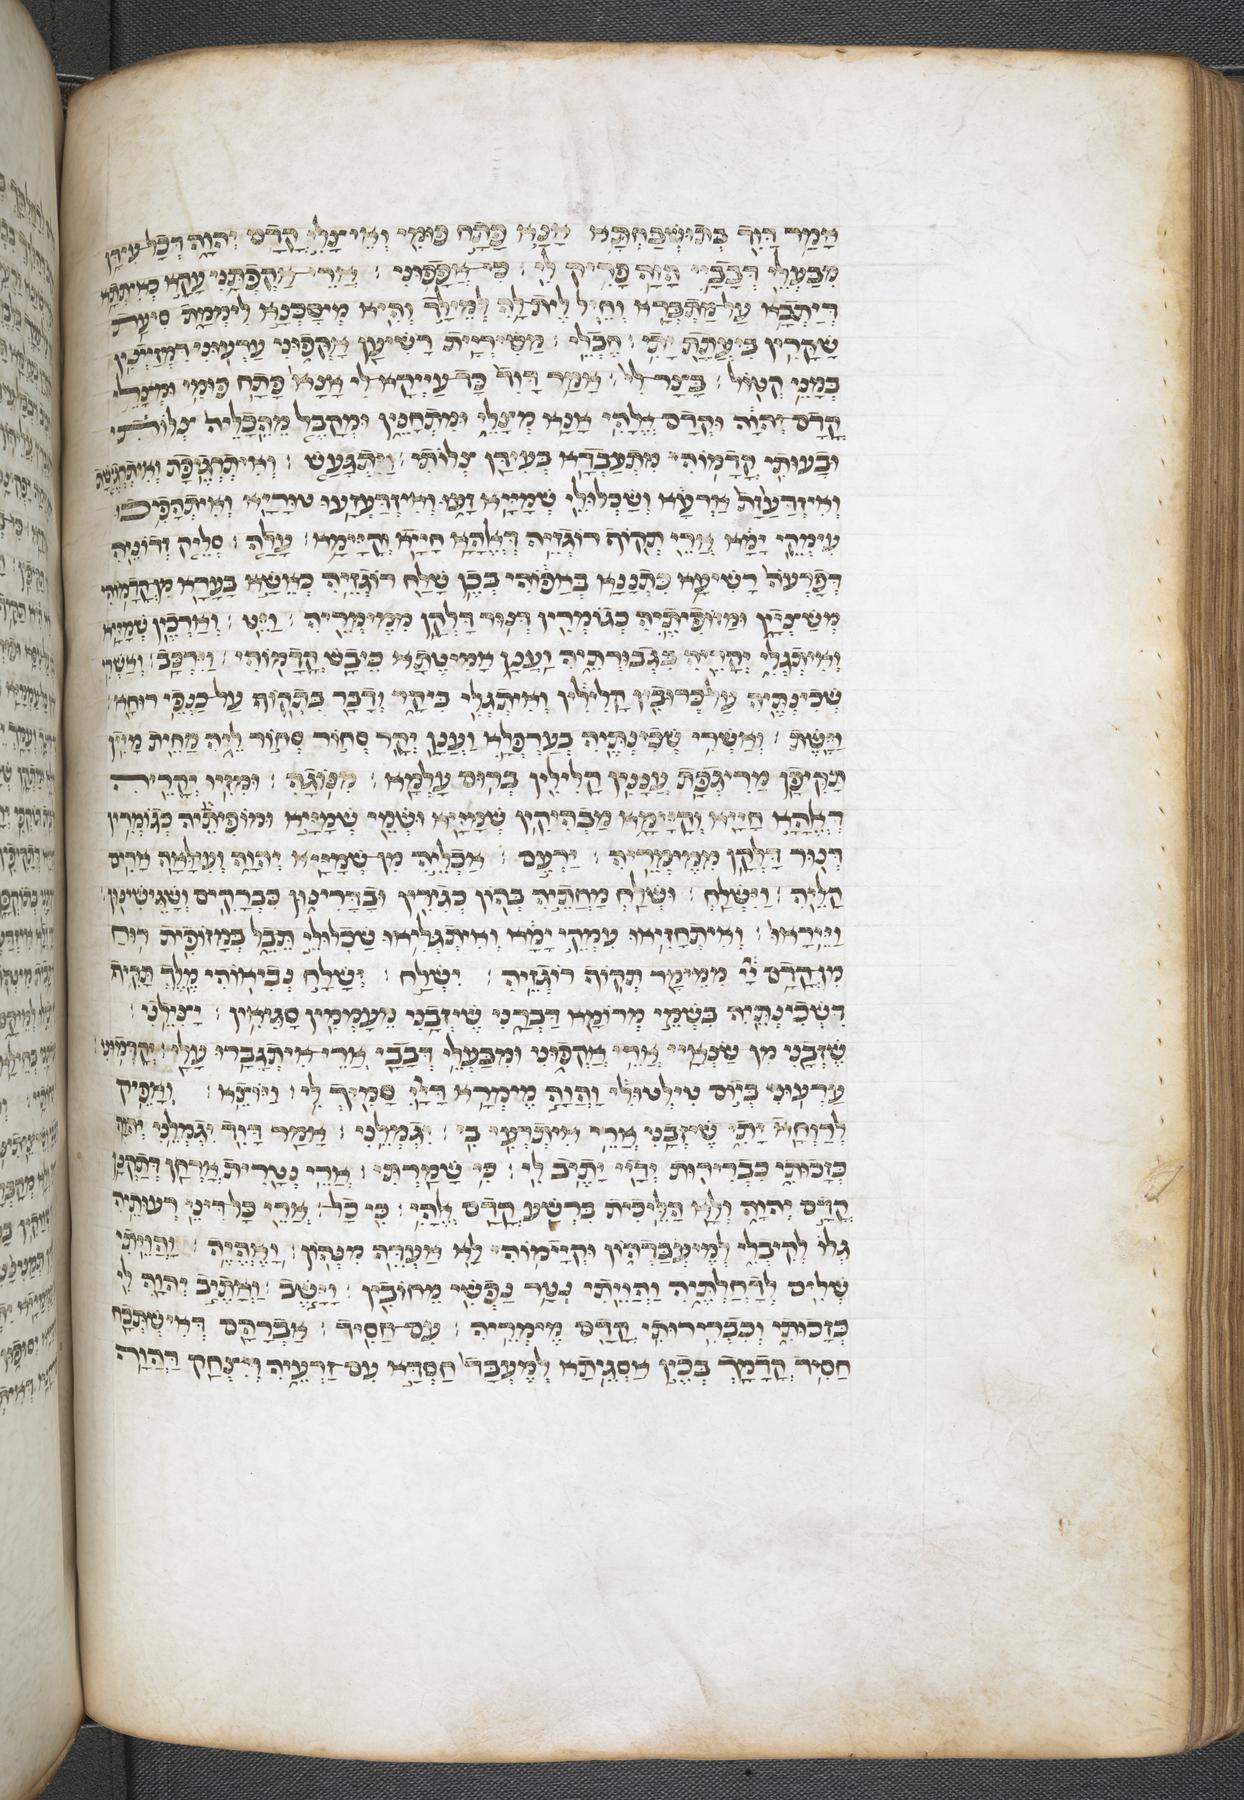 אמר דוד בתושבחתא אנא פתח פומי ואיצלי קדם יהוה דבכל עידן
מבעלי דבבי הוה פריק לי ׃ כי אפפוני ׃ ארי אקפתני עקא כאיתתא
דיתבא על מתברא וחיל לית לה למילד והיא מיסכנא לממת סיעת
שקרין ביעתת יתי ׃ חבלי ׃ משירית רשיען אקפוני ערעוני דמזיינין
במני קטול ׃ בצר לי ׃ אמר דוד כד עייקא לי אנא פתח פומי ומצלי
קדם יהוה וקדם אלהי אנא מצלי ומתחנין ומקבל מהיכליה צלותי
ובעותי קדמוהי מתעבדא בעידן צלותי ׃ ויתגעש ׃ ואיתרגיפת ואיתרגישת
ואיזדעזעת ארעא ושכלולי שמיא זעו ואיזדעזעו טוריא ואיתהפיכו
עימקי ימא ארי תקוף רוגזיה דאלהא חייא וקיימא ׃ עלה ׃ סליק זדוניה
דפרעה רשיעא כתננא באפוהי בכן שלח רוגזיה כאשא בערא מן קדמוהי
משיצין ומזופיתיה כגומרין דנור דלקן ממימריה ׃ ויט ׃ וארכין שמיא
ואיתגלי יקריה בגבורתיה וענן אמיטתא כיבש קדמוהי ׃ וירכב ׃ ואשרי
שכינתיה על כרובין קלילין ואיתגלי ביקר ודבר בתקוף על כנפי רוחא ׃
וישת ׃ ואשרי שכינתיה בערפלא וענן יקר סחור סחור ליה מחית מיין
תקיפן מריגפת עננין קלילין ברום עלמא ׃ מנוגה ׃ ומזיו יקריה
דאלהא חייא וקיימא מבהיקין שמיא ושמי שמיא ומזופיתיה כגומרין
דנור דלקן ממימריה ׃ ירעם ׃ אכליה מן שמיא יהוה ועילאה ארים
קליה ׃ וישלח ׃ ושלח מחתיה בהון כגירין ובדרינון כברקים ושגישינון
ויראו ׃ ואיתחזיאו עמקי ימא ואיתגליאו שכלולי תבל במזופית רוח
מן קדם יי ממימר תקוף רוגזיה ׃ ישלח ׃ ושלח נביאוהי מלך תקיף
דשכינתיה בשמי מרומא דברני שיזבני מעממין סגיאין ׃ יצילני ׃
שזבני מן שנאיי ארי אקפוני ומבעלי דבבי ארי איתגברו עלי ׃ יקדמוני
ערעוני ביום טילטולי והוה מימרא דיי סמיך לי ׃ ויוציא ׃ ואפיק
לרווחא יתי שיזבני ארי איתרעי בי ׃ יגמלני ׃ אמר דוד יגמלני יהוה
כזכותי כבריות ידיי יתיב לי ׃ כי שמרתי ׃ ארי נטרית ארחן דתקנן
קדם יהוה ולא הליכית ברשע קדם אלהי ׃ כי כל ׃ ארי כל דיני רעותיה
גלו לקיבלי למיעבדהון וקיימוהי לא אעדה מנהון ׃ ואהיה ׃ והויתי
שלים לדחלתיה והויתי נטר נפשי מחובין ׃ וישב ׃ ואתיב יהוה לי
כזכותי וכברירותי קדם מימריה ׃ עם חסיד ׃ אברהם דאישתכח
חסיד קדמך בכין אסגיתא למעבד חסדא עם זרעיה ויצחק דהוה